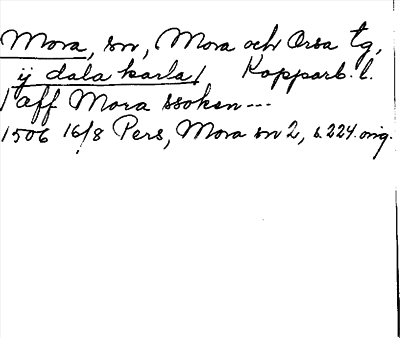 Mora, sn, Mora och Orsa tg,
ij dala karla/ Kopparb. l.
/aff Mora ssoken ---
1506 16/8 Pers, Mora sn 2, s. 224. orig.